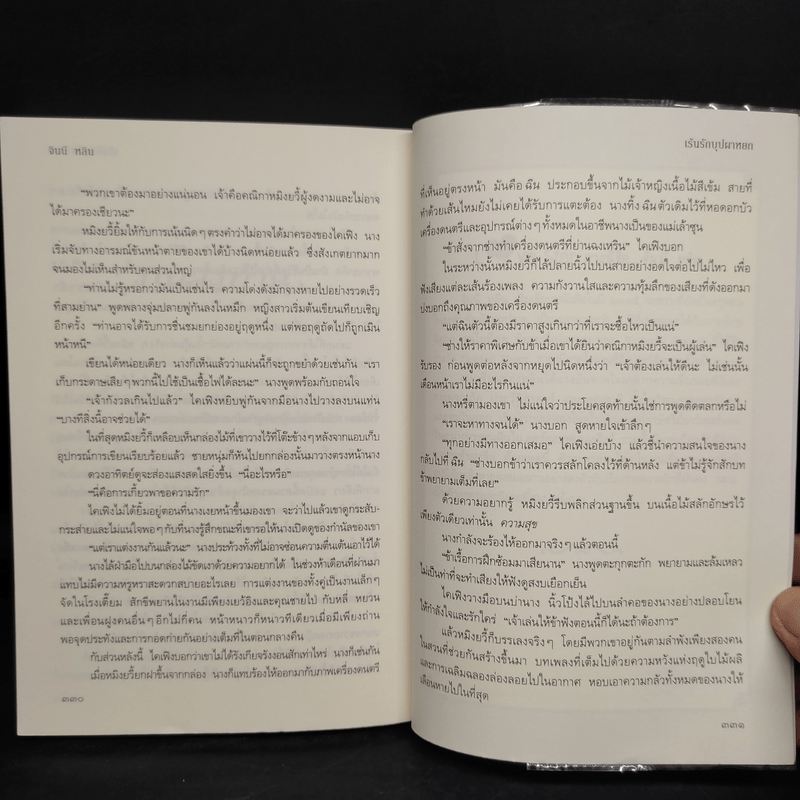 จินนี หลิน
"พวกเขาต้องมาอย่างแน่นอน เจ้าคือคณิกาหมิงยวี้ผู้งดงามและไม่อาจ
ได้มาครองเชียวนะ"
หมิงยวี้ยิ้มให้กับการเน้นนิดๆ ตรงคำว่าไม่อาจได้มาครองของไคเฟิง นาง
เริ่มจับทางอารมณ์ขันหน้าตายของเขาได้บ้างนิดหน่อยแล้ว ซึ่งสังเกตยากมาก
จนมองไม่เห็นสำหรับคนส่วนใหญ่
"ท่านไม่รู้หรอกว่ามันเป็นเช่นไร ความโด่งดังมักจางหายไปอย่างรวดเร็ว
ที่สามย่าน" พูดพลางจุ่มปลายพู่กันลงในหมึก หญิงสาวเริ่มต้นเขียนเทียบเชิญ
อีกครั้ง "ท่านอาจได้รับการชื่นชมยกย่องอยู่ฤดูหนึ่ง แต่พอฤดูถัดไปก็ถูกเมิน
หน้าหนี"
เขียนได้หน่อยเดียว นางก็เห็นแล้วว่าแผ่นนี้ก็จะถูกขยำด้วยเช่นกัน "เรา
เก็บกระดาษเสียๆ พวกนี้ไปใช้เป็นเชื้อไฟได้ละนะ" นางพูดพร้อมกับถอนใจ
"เจ้ากังวลเกินไปแล้ว" ไคเฟิงหยิบพู่กันจากมือนางไปวางลงบนแท่น
"บางทีสิ่งนี้อาจช่วยได้"
ในที่สุดหมิงยวี้ก็เหลือบเห็นกล่องไม้ที่เขาวางไว้ที่โต๊ะข้างๆ หลังจากแอบเก็บ
อุปกรณ์การเขียนเรียบร้อยแล้ว ชายหนุ่มก็หันไปยกกล่องนั้นมาวางตรงหน้านาง
ดวงอาทิตย์ดูจะส่องแสงสดใสยิ่งขึ้น "นี่อะไรหรือ"
"นี่คือการเกี้ยวพาขอความรัก"
ไคเฟิงไม่ได้ยิ้มอยู่ตอนที่นางเงยหน้าขึ้นมองเขา จะว่าไปแล้วเขาดูกระสับ-
กระส่ายและไม่แน่ใจพอๆ กับที่นางรู้สึกขณะที่เขารอให้นางเปิดดูของกำนัลของเขา
"แต่เราแต่งงานกันแล้วนะ" นางประท้วงทั้งที่ไม่อาจซ่อนความตื่นเต้นเอาไว้ได้
นางไล้ฝ่ามือไปบนกล่องไม้ขัดเงาด้วยความอยากได้ ในช่วงห้าเดือนที่ผ่านมา
แทบไม่มีความหรูหราสะดวกสบายอะไรเลย การแต่งงานของทั้งคู่เป็นงานเล็กๆ
จัดในโรงเตี๊ยม สักขีพยานในงานมีเพียงเยว่อิงและคุณชายไป่ กับหลี่ หยวน
และเพื่อนฝูงคนอื่นๆ อีกไม่กี่คน หน้าหนาวก็หนาวทีเดียวเมื่อมีเพียงถ่าน
พอจุดประทังและการกอดก่ายกันอย่างเต็มที่ในตอนกลางคืน
กับส่วนหลังนี้ ไคเฟิงบอกว่าเขาไม่ได้รังเกียจรังงอนสักเท่าไหร่ นางก็เช่นกัน
เมื่อหมิงยวี้ยกฝาขึ้นจากกล่อง นางก็แทบร้องไห้ออกมากับภาพเครื่องดนตรี
๓๓๐
เร้นรักบุปผาหยก
ที่เห็นอยู่ตรงหน้า มันคือ ฉิน ประกอบขึ้นจากไม้เจ้าหญิงเนื้อไม้สีเข้ม สายที่
ทำด้วยเส้นไหมยังไม่เคยได้รับการแตะต้อง นางทิ้ง ฉิน ตัวเดิมไว้ที่หอดอกบัว
เครื่องดนตรีและอุปกรณ์ต่างๆ ทั้งหมดในอาชีพนางเป็นของแม่เล้าซุน
"ข้าสั่งจากช่างทำเครื่องดนตรีที่ย่านฉงเหริน" ไคเฟิงบอก
ในระหว่างนั้นหมิงยวี้ก็ไล้ปลายนิ้วไปบนสายอย่างอดใจต่อไปไม่ไหว เพื่อ
ฟังเสียงแต่ละเส้นร้องเพลง ความกังวานใสและความทุ้มลึกของเสียงที่ดังออกมา
บ่งบอกถึงคุณภาพของเครื่องดนตรี
"แต่ฉินตัวนี้ต้องมีราคาสูงเกินกว่าที่เราจะซื้อไหวเป็นแน่"
"ช่างให้ราคาพิเศษกับข้าเมื่อเขาได้ยินว่าคณิกาหมิงยวี้จะเป็นผู้เล่น" ไคเฟิง
รับรอง ก่อนพูดต่อหลังจากหยุดไปนิดหนึ่งว่า "เจ้าต้องเล่นให้ดีนะ ไม่เช่นนั้น
เดือนหน้าเราไม่มีอะไรกินแน่"
นางหรี่ตามองเขา ไม่แน่ใจว่าประโยคสุดท้ายนั้นใช่การพูดติดตลกหรือไม่
"เราจะหาทางจนได้" นางบอก สูดหายใจเข้าลึกๆ
"ทุกอย่างมีทางออกเสมอ" ไคเฟิงเอ่ยบ้าง แล้วชี้นำความสนใจของนาง
กลับไปที่ ฉิน "ช่างบอกข้าว่าเราควรสลักโคลงไว้ที่ด้านหลัง แต่ข้าไม่รู้จักสักบท
ข้าพยายามเต็มที่เลย"
ด้วยความอยากรู้ หมิงยวี้รีบพลิกส่วนฐานขึ้น บนเนื้อไม้สลักอักษรไว้
เพียงตัวเดียวเท่านั้น ความสุข
นางกำลังจะร้องไห้ออกมาจริงๆ แล้วตอนนี้
"ข้าเรื้อการฝึกซ้อมมาเสียนาน" นางพูดตะกุกตะกัก พยายามและล้มเหลว
ไม่เป็นท่าที่จะทำเสียงให้ฟังดูสงบเยือกเย็น
ไคเฟิงวางมือบนบ่านาง นิ้วโป้งไล้ไปบนลำคอของนางอย่างปลอบโยน
ให้กำลังใจและรักใคร่ "เจ้าเล่นให้ข้าฟังตอนนี้ก็ได้นะถ้าต้องการ"
แล้วหมิงยวี้ก็บรรเลงจริงๆ โดยมีพวกเขาอยู่กันตามลำพังเพียงสองคน
ในสวนที่ช่วยกันสร้างขึ้นมา บทเพลงที่เต็มไปด้วยความหวังแห่งฤดูใบไม้ผลิ
และการเฉลิมฉลองล่องลอยไปในอากาศ หอบเอาความกลัวทั้งหมดของนางให้
เลือนหายไปในที่สุด
๓๓๑